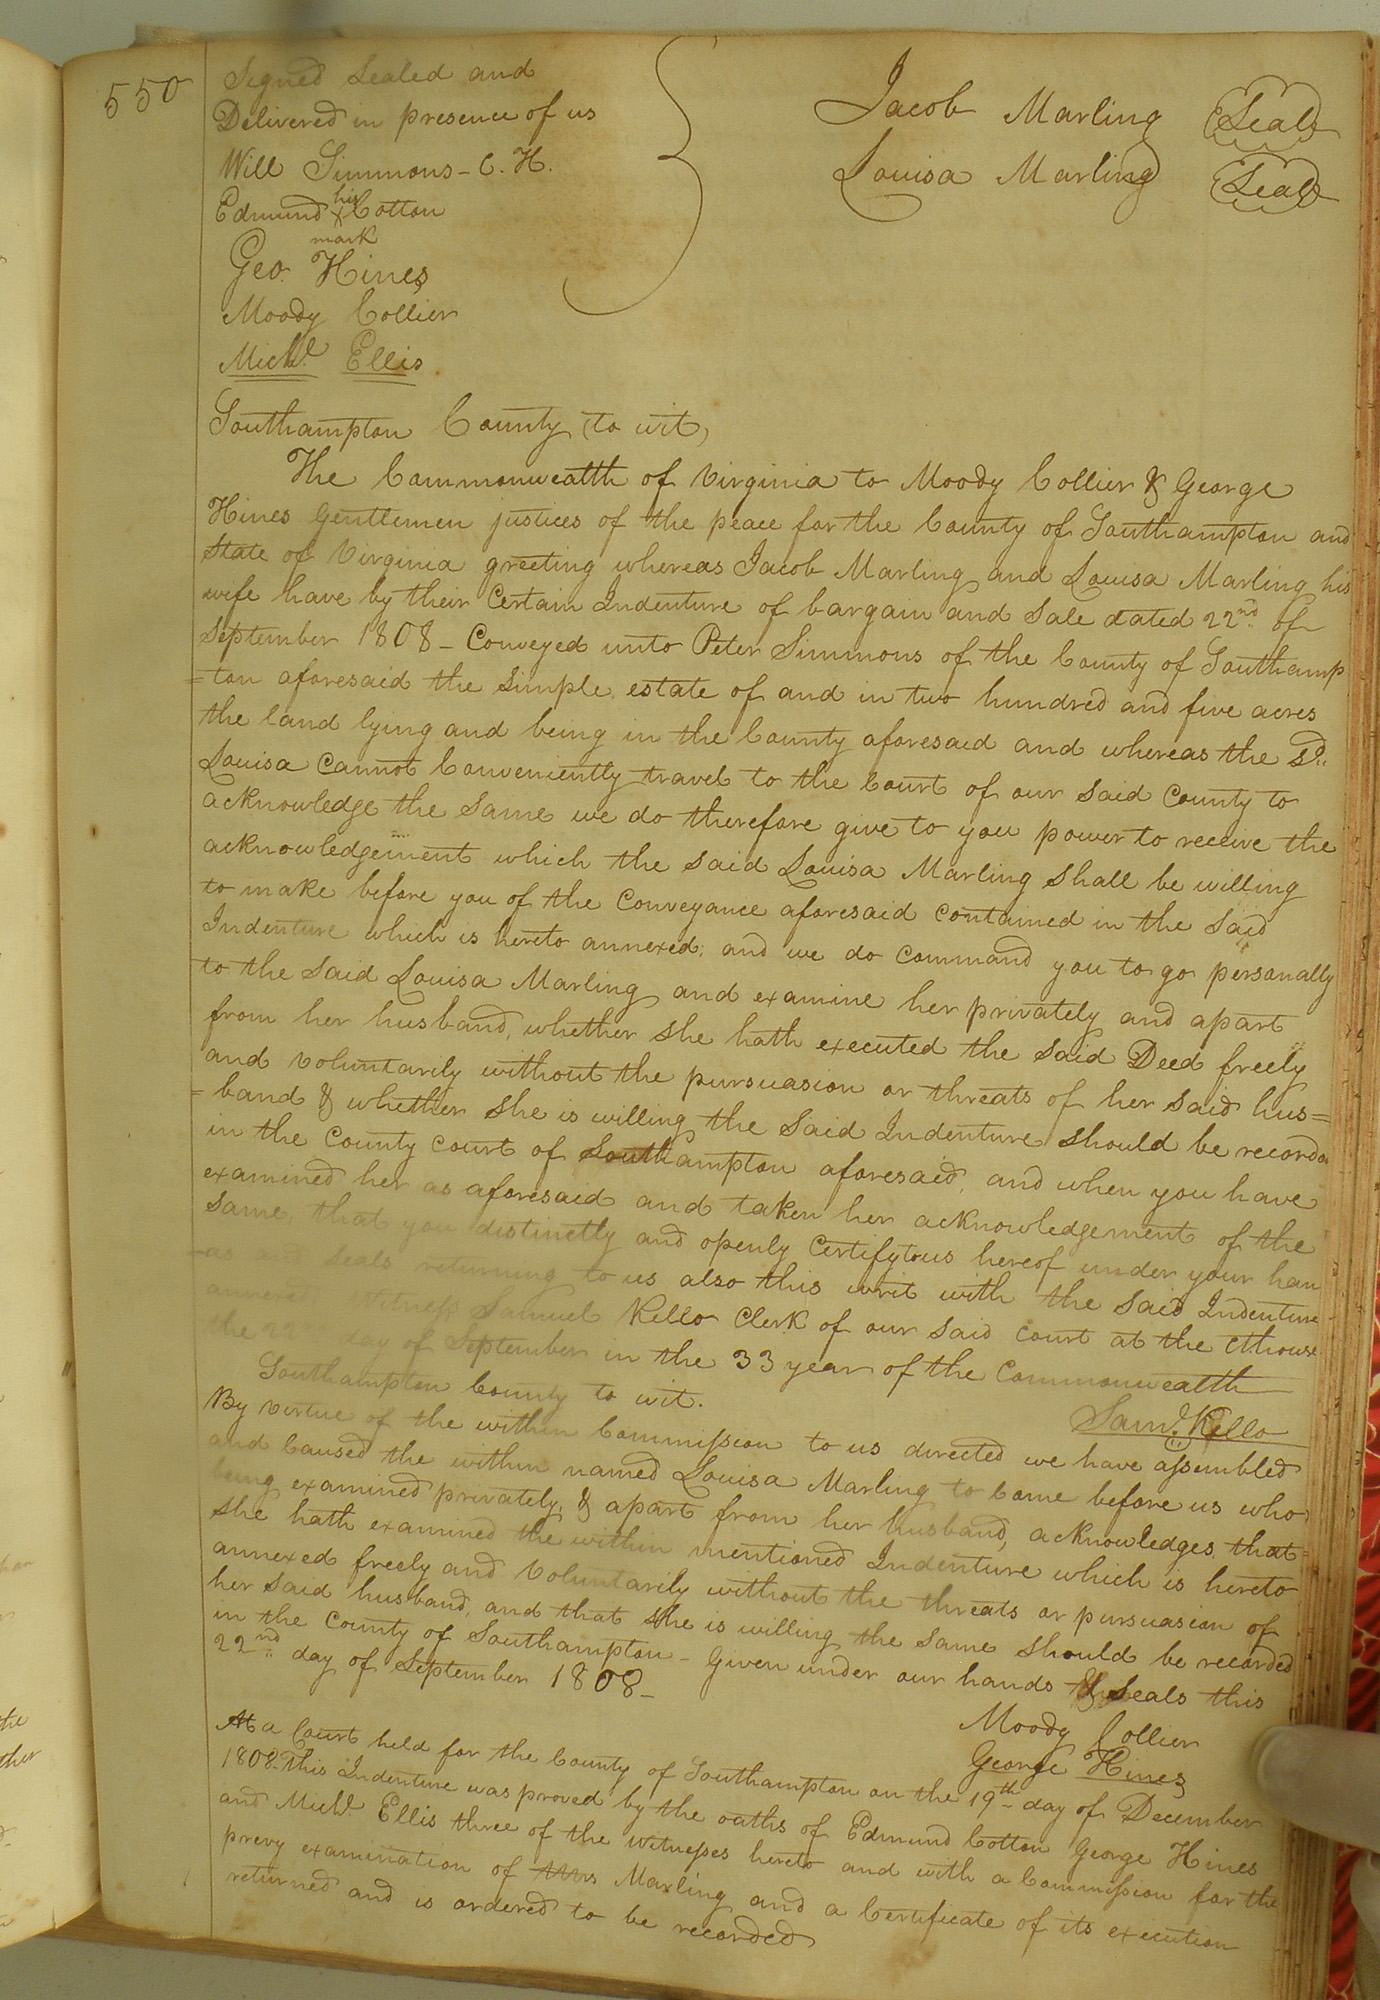 550
Signed Sealed and
Delivered in presence of us
Jacob Marling Seal
Louisa Marling Seal
Will Simmons - C. H.
Edmund his X mark Cotton
Geo. Hines
Moody Collier
Michl. Ellis
Southampton County (to wit)
The Commonwealth of Virginia to Moody Collier & George
Hines Gentlemen justices of the peace for the County of Southampton and
State of Virginia greeting whereas Jacob Marling and Louisa Marling his
wife have by their Certain Indenture of bargain and Sale dated 22nd of
September 1808 - Conveyed unto Peter Simmons of the County of Southamp
=ton aforesaid the Simple estate of and in two hundred and five acres
the land lying and being in the County aforesaid and whereas the sd.
Louisa Cannot Conveniently travel to the Court of our said County to
acknowledge the Same we do therefore give to you power to receive the
acknowledgement which the said Louisa Marling shall be willing
to make before you of the Conveyance aforesaid contained in the said
Indenture which is hereto annexed; and we do command you to go personally
to the said Louisa Marling and examine her privately and apart
from her husband, whether she hath executed the said Deed freely
and voluntarily without the pursuasion or threats of her said hus=
=band & whether she is willing the said Indenture should be recorded
in the County Court of Southampton aforesaid, and when you have
examined her as aforesaid and taken her acknowledgement of the
same, that you distinctly and openly Certify to us hereof under your han
-as and seals returning to us also this writ with the said Indenture
annexed Witness Samuel Kello Clerk of our said Court at the Cthouse
the 22nd day of September in the 33 year of the Commonwealth
Saml. Kello
Southampton County to wit.
By virtue of the within Commission to us directed we have assembled
and Caused the within named Louisa Marling to Come before us who
being examined privately, & apart from her husband, acknowledges that=
she hath examined the within mentioned Indenture which is hereto
annexed freely and Voluntarily without the threats or pursuasion of
her said husband, and that she is willing the same should be recorded
in the County of Southampton - Given under our hands & Seals this
22nd day of September 1808 -
Moody Collier
George Hines
At a Court held for the County of Southampton on the 19th day of December
1808 This Indenture was proved by the oaths of Edmund Cotton George Hines
and Michl Ellis three of the Witnesses hereto and with a Commission for the
prevy examination of Mrs Marling and a Certificate of its execution
returned and is ordered to be recorded